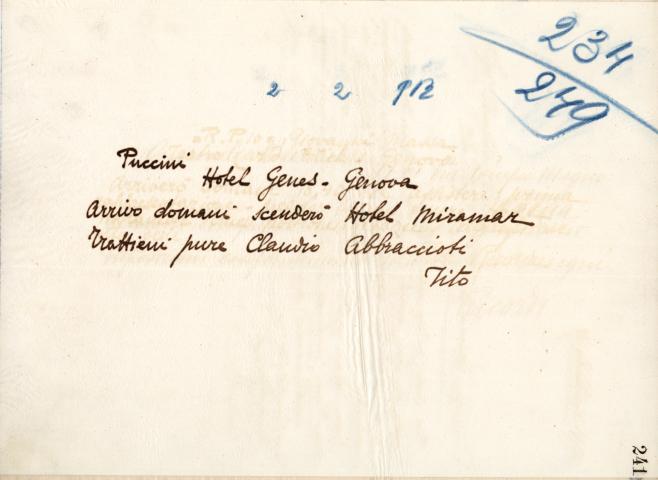 234
249
2 2 912
Puccini
Hotel Genes - Genova
Arrivo domani scenderò Hotel Miramar
Trattieni pure Claudio Abbraccioti
Tito
241